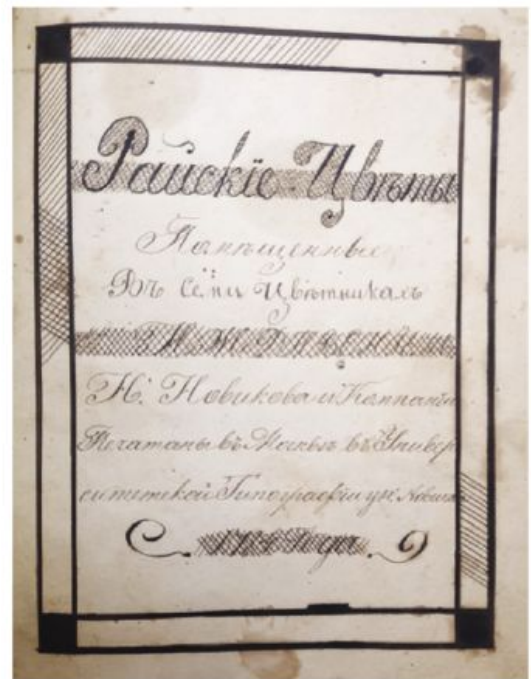 Райскіе Цвѣты
Помѣщенные
Въ Семи Цвѣтникахъ
Н. Новикова и Компаніи
Печатаны въ Москвѣ въ Универ
ситетской Типографіи у Н. Новикова
Года